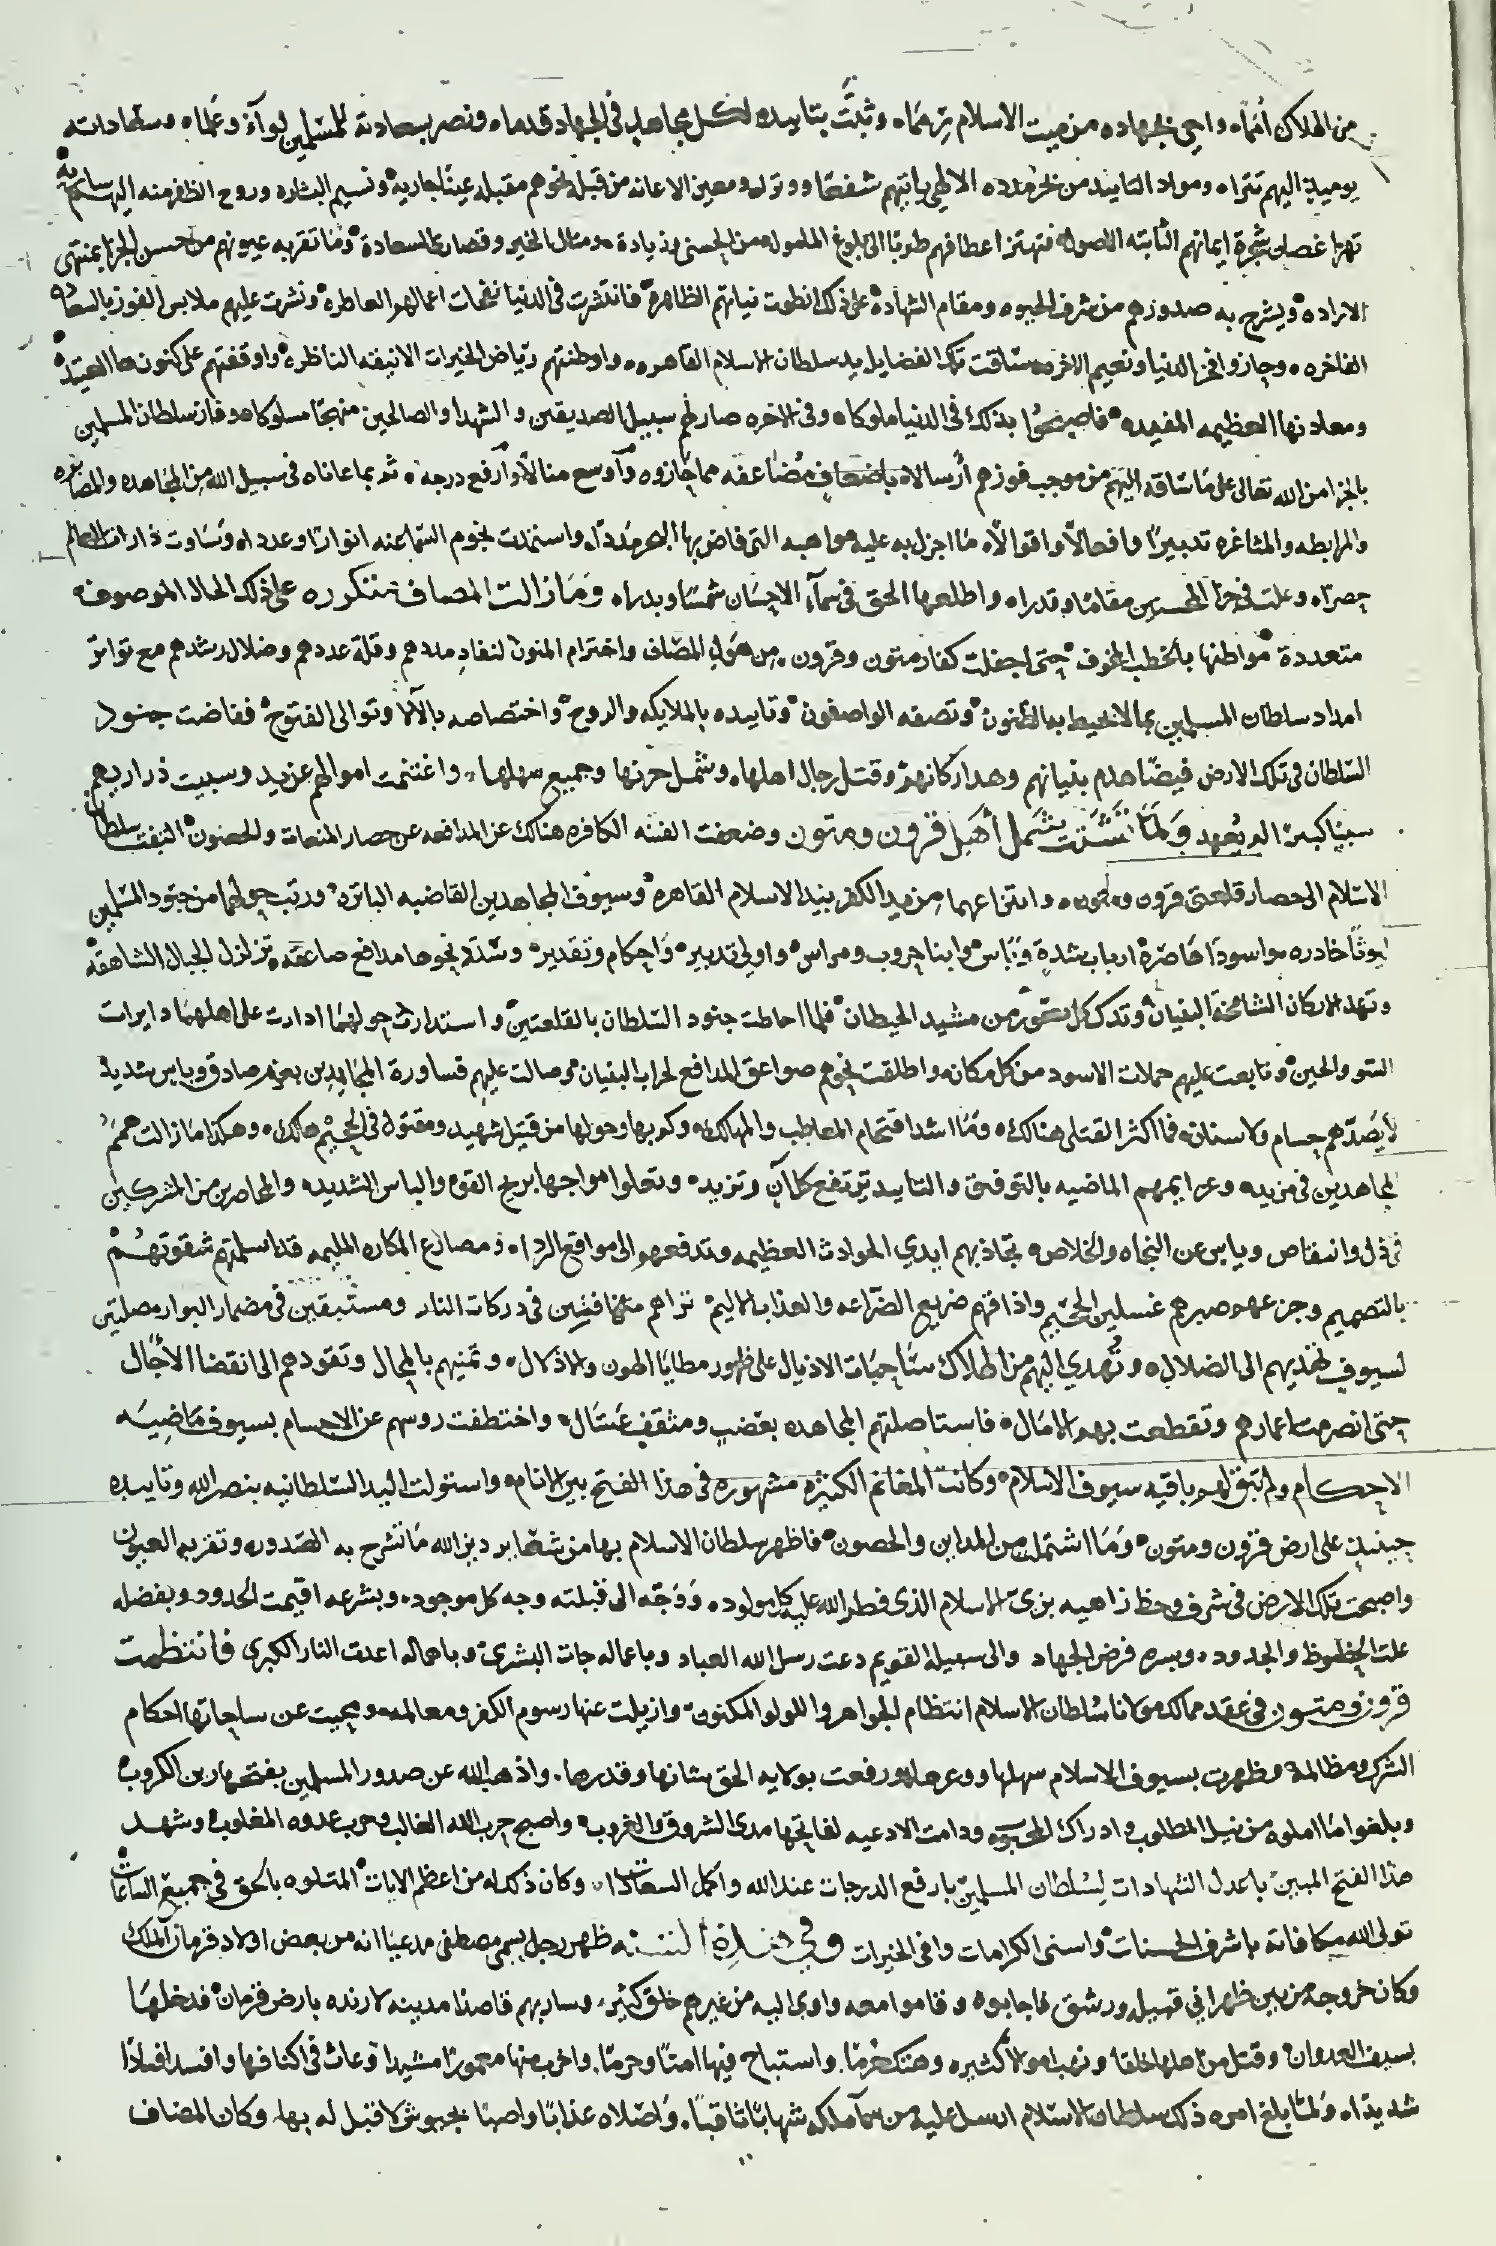 من الهلاك أمما، واحيى بجهاده من ميت الاسلام رمما، وثبت بتاييده لكل مجاهد في الجهاد قدما، ونصر بسعادته للمسلمين لوآءً وعلما، وسعاداته
يوميذ اليهم تترا، ومواد التاييد من مدده الالهي ياتيهم شفعا ووترا، ومعين الاعانه من قبله نحوهم مقبله عينا جاريه، ونسيم البشاره وروح الظفر منه اليهم ساريه
تهز اغصان شجرة ايمانهم الثابته الاصول، فتهتز اعطافهم طربا الى بلوغ المامول، من الحسنى وزيادة، ومنال الخير وقصارى السعادة، وما تقر به عيونهم من حسن الجزا بمنتهى
الاراده، ويشرح به صدورهم من شرف الحيوه ومقام الشهادة، على ذلك انطوت نياتهم الطاهرة، فانتشرت في الدنيا نفحات اعمالهم العاطره، ونشرت عليهم ملابس الفوز بالسعاده
الفاخره، وحازوا فخر الدنيا ونعيم الاخره، ساقت تلك الفضايل يد سلطان الاسلام القاهره، واوطنتهم رياض الخيرات الانيقه الناظره، واوقفتهم على كنوزها العتيده
ومعادنها العظيمه المفيده، فاصبحوا بذلك في الدنيا ملوكا، وفي الاخره صار لهم سبيل الصديقين والشهدا والصالحين منهجا مسلوكا، وفاز سلطان المسلمين
بالجزا من الله تعالى على ما ساقه اليهم من موجب فوزهم ارسالا، باضعاف مضاعفه مما حازوه وأوسع منالا، وأرفع درجه، ثم بما عاناه في سبيل الله من المجاهده والمصابره
والمرابطه والمثاغره تدبيرا وافعالا واقوالا، ما اجزل به عليه مواهبه التي فاض بها البحر مددا، واستمدت نجوم السما عنه انوارا وعددا، وساوت ذارات العالم
حصرا، وعلت في جزا المحسنين مقاما وقدرا، واطلعها الحق في سمآء الاحسان شمسا وبدرا، وما زالت المصاف تتكرره على ذلك الحال الموصوف،
متعددة مواطنها بالخطب المخوف، حتى اجفلت كفار متون وقرون، من هول المصاف واخترام المنون، لنفاد مددهم وقلة عددهم وضلال رشدهم مع تواتر
امداد سلطان المسلمين بما لا تحيط به الظنون، وتصفه الواصفون، وتاييده بالملايكه والروح، واختصاصه بالآلا وتوالى الفتوح، ففاضت جنود
السلطان في تلك الارض فيضا هدم بنيانهم وهد اركانهم، وقتل رجال اهلها، وشمل حزنها وجميع سهلها، واغتنمت اموالهم عزيد وسبيت ذراريهم
سبيا كبيرا لم يعهد ولما تشتت شمل أهيل قرون ومتون وضعفت الفئه الكافره هنالك عن المدافعه عن حصار المنعات والحصون، التفت سلطان
الاسلام الى حصار قلعتي قرون ومتون، وانتزاعهما من يد الكفر بيد الاسلام القاهره، وسيوف المجاهدين القاضبه الباتره، ورتب حولهما من جنود المسلمين
ليوثا خادره، واسودا هاصرة، ارباب شدة وبأس، وابنا حروب ومراس، واولي تدبير، واحكام وتقدير، وشدد نحوها مدافع صاعقه، تزلزل الجبال الشاهقه
وتهد الاركان الشامخة البنيان، وتدك كل متحور من مشيد الحيطان، فلما احاطت جنود السلطان بالقلعتين، واستدارت حولهما ادارت على اهلهما دايرات
السوء والحين، وتابعت عليهم حملات الاسود من كل مكان، واطلقت نحوهم صواعق المدافع لخراب البنيان، وصالت عليهم قساورة المجاهدين بعزم صادق وباس شديد،
لا يصدهم حسام ولا سنان، فما اكثر القتلى هنالك، وما اشد اقتحام المعاطب والمهالك، وكم بها وحولها من قتيل شهيد، ومقتول في الجحيم هالك، وهكذا ما زالت همم
المجاهدين في مزيد، وعزايمهم الماضيه بالتوفيق والتاييد ترتفع كل آن وتزيد، وتحلوا مواجها بريح القوه والباس الشديد، والمحاصرين من المشركين
في ذل وانتقاص، وياس عن النجاه والخلاص، تجاذبهم ايدي الحوادث العظيمه وتدفعهم الى مواقع الردا، ومصارع المكاره المليمه قد اسلمتهم شقوتهم
بالتصميم وجزعهم وصبرهم غسلين الحميم واذاقتهم ضريع الضراعه والعذاب الاليم، تراهم متهافتين في دركات النار ومستبقين في مضمار البوار مصلتين
لسيوف تهديهم الى الضلال، وتهدي اليهم من الهلاك ساحبات الاذيال على ظهور مطايا الهون والاذلال، وتمنيهم بالمحال وتقودهم الى انقضا الأجال
حتى انصرمت اعمارهم وتقطعت بهم الامال، فاستاصلتهم المجاهده بعضب ومثقف عسال، واختطفت روسهم عن الاجسام بسيوف ماضيه
الاحكام ولم تبق لهم باقيه سيوف الاسلام، وكانت المغانم الكثيره مشهوره في هذا الفتح بين الانام، واستولت اليد السلطانيه بنصر الله وتاييده
حينيذ على ارض قرون ومتون، وما اشتملت من المداين والحصون، فاظهر سلطان الاسلام بها من شعاير دين الله ما تشرح به الصدور، وتقر به العيون
واصبحت تلك الارض في شرف وحظ زاهيه بزي الاسلام الذي فطر الله عليه كل مولود، ووجه الى قبلته وجه كل موجود، وبشرعه اقيمت الحدود، وبفضله
علت الحظوظ والجدود، وبسره فرض الجهاد والى سبيله القويم دعت رسل الله العباد وباعماله جات البشرى وباهماله اعدت النار الكبرى فانتظمت
قرون ومتون في عقد ممالك مولانا سلطان الاسلام انتظام الجواهر واللولو المكنون، وازيلت عنها رسوم الكفر ومعالمه، ومحيت عن ساحاتها احكام
الشرك ومظالمه، وظهرت بسيوف الاسلام سهلها ووعرها، ورفعت بولايه الحق شانها وقدرها، واذهب الله عن صدور المسلمين بفتحها رين الكروب،
وبلغوا ما املوه من نيل المطلوب، وادراك المحبوب، ودامت الادعيه لفاتحها مدى الشروق والغروب، واصبح حزب الله الغالب وحزب عدوه المغلوب، وشهد
هذا الفتح المبين، باعدل الشهادات لسلطان المسلمين بارفع الدرجات عند الله واكمل السعادات، وكان ذلك له من اعظم الايات، المتلوه بالحق في جميع الساعات
تولى الله مكافاته باشرف الحسنات، واسنى الكرامات وافي الخيرات وفي هذه السنه ظهر رجل يسمى مصطفى مدعيا انه من بعض اولاد قرمان الملك
وكان خروجه من بين ظهراني قبيله ورشق فاجابوه وقاموا معه واوى اليه من غيرهم خلق كثير، وسار بهم قاصدا مدينه لارنده بارض قرمان، فدخلها
بسيف العدوان، وقتل من اهلها خلقا، ونهب اموالا كثيره وهتك حرما، واستباح فيها امنا وحرما، واخرب منها معمورا مشيدا، وعاث في اكنافها وافسد افسادا
شديدا، ولما بلغ امره ذلك سلطان الاسلام ارسل عليه من سمآء ملكه شهابا ثاقبا، واصلاه عذابا واصبا بجيوش لا قبل له بها، وكان المضاف